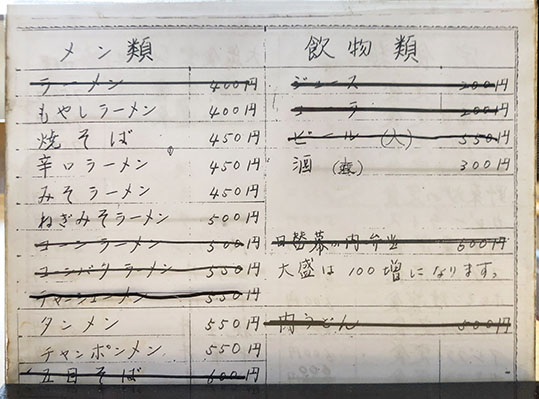 メン類
ラーメン 400円
もやしラーメン 400円
焼そば 450円
辛口ラーメン 450円
みそラーメン 450円
ねぎみそラーメン 500円
コーンラーメン 500円
コーンバターラーメン 550円
チャーシューメン 550円
タンメン 550円
チャンポンメン 550円
五目そば 600円
飲物類
ジュース 200円
コーラ 200円
ビール (大) 550円
酒 300円
日替幕の内弁当 600円
大盛は100増になります。
肉うどん 500円